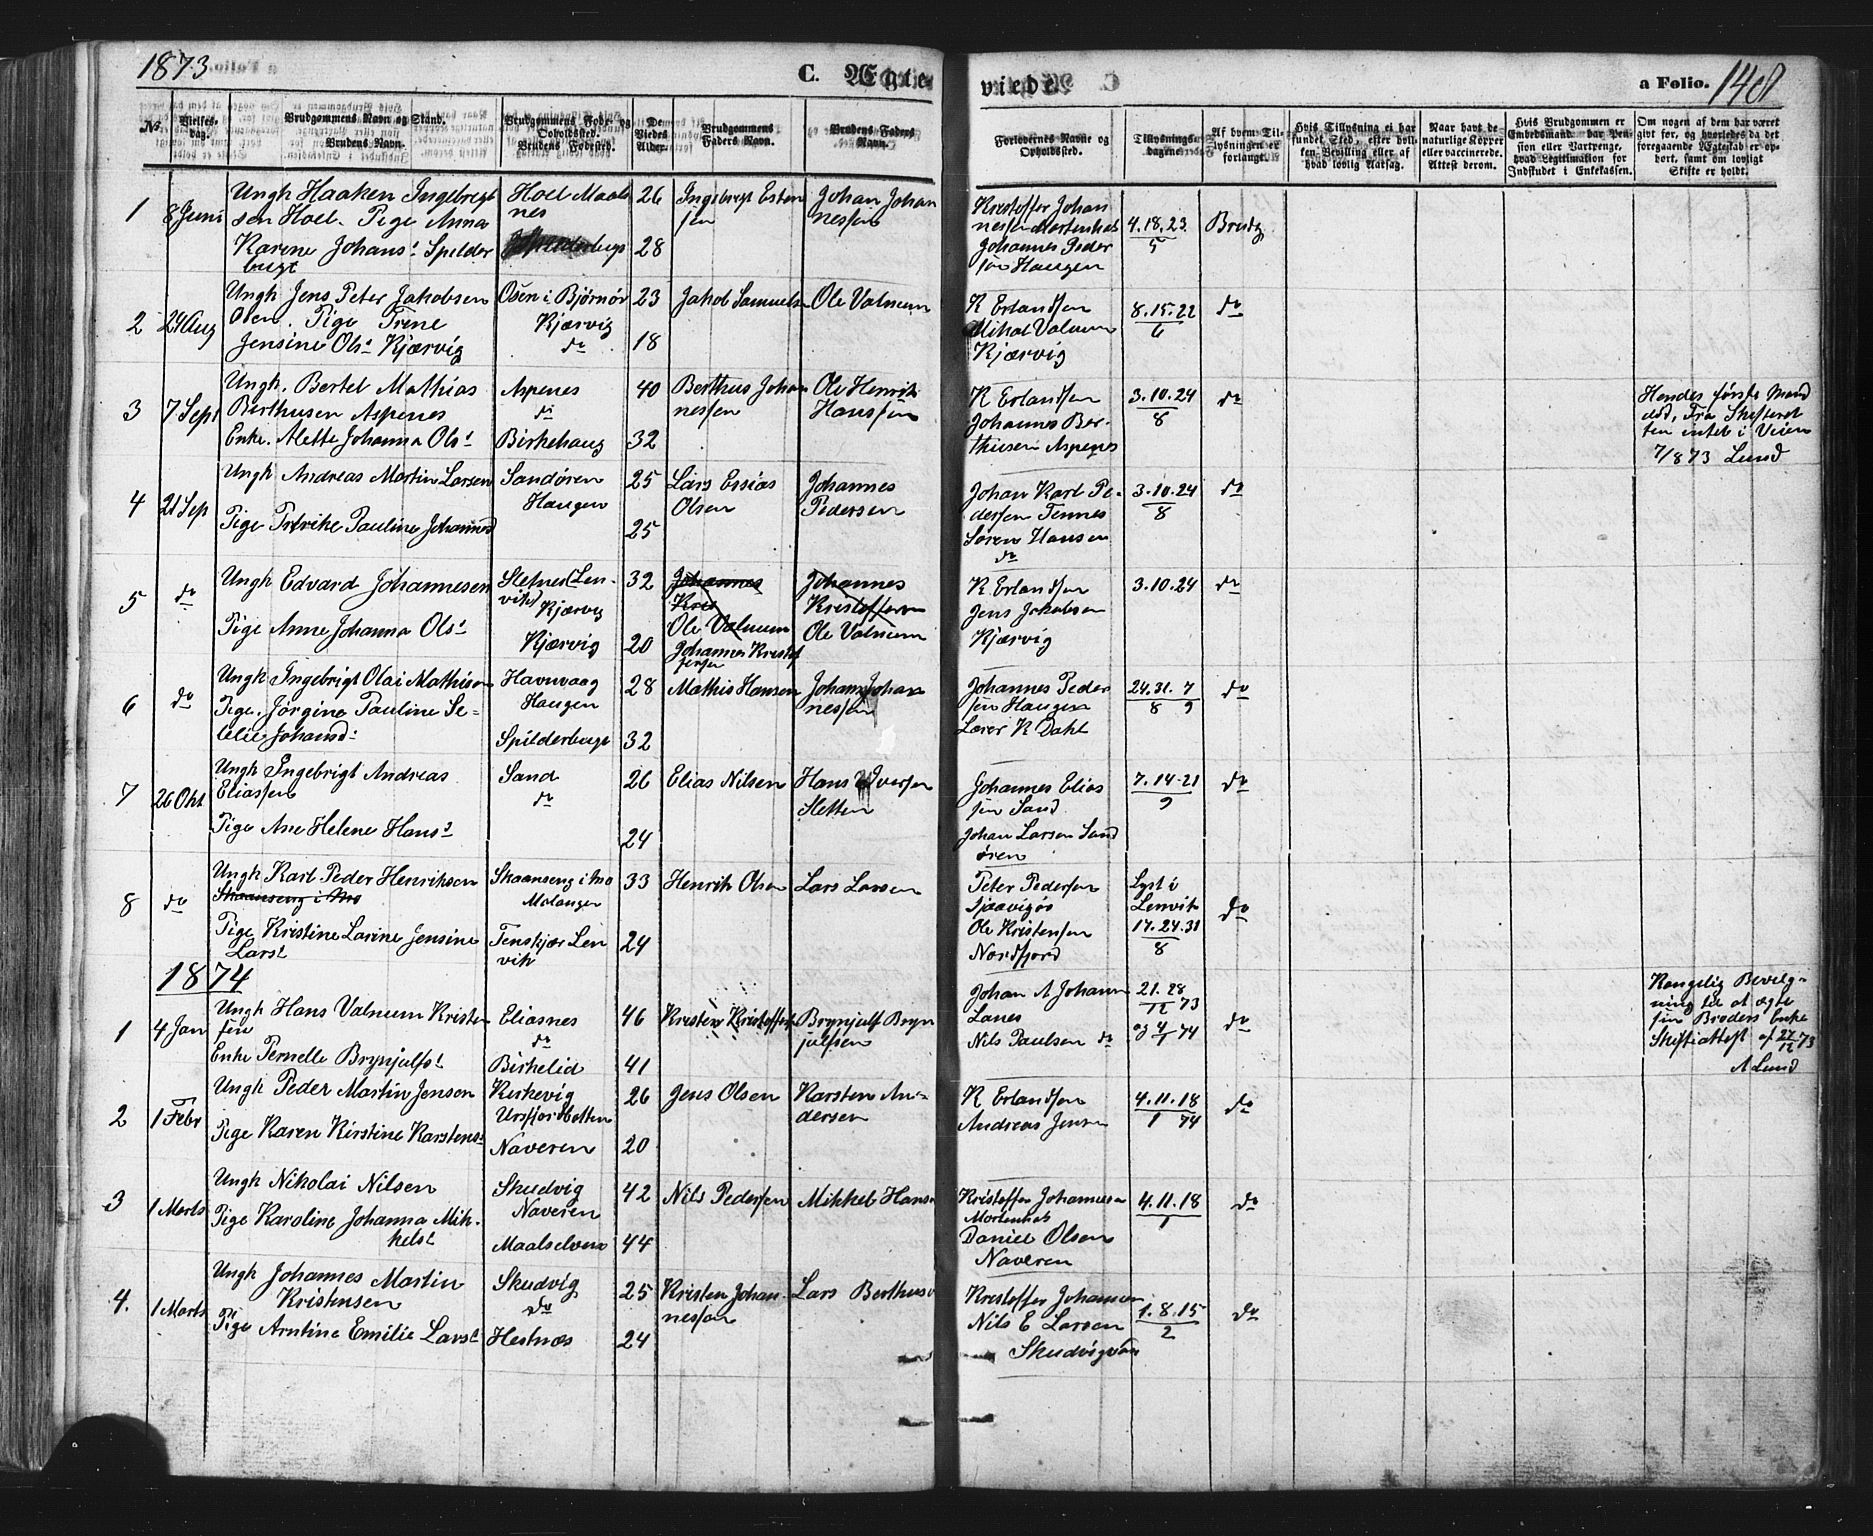 1873
C. Ægte
viede.
a Folio. 140
No.
Vielses-
dag.
Brudgommens Navn og Stand.
Brudens Navn.
Brudgommens Føde- og
Opholdssted.
Brudens Fødested.
De
Viedes
Alder.
Brudgommens
Faders Navn.
Brudens Faders
Navn.
Forlovernes Navne og
Opholdssted.
Tillysnings-
dagene.
Af hvem Til-
lysningen er
forlangt.
Hvis Tillysning ei har
fundet Sted, efter hvil-
ken Bevilling eller af
hvad lovlig Aarsag.
Naar havt de
naturlige Kopper
eller vaccinerede.
Attest derom.
Hvis Brudgommen er
Embedsmand, har Pen-
sion eller Vartpenge,
hvad Legitimation for
Indskudet i Enkekassen.
Om nogen af dem har været
givt før, og hvorledes da det
foregaaende Ægteskab er op-
hørt, samt om lovligt
Skifte er holdt.
1 8 Juni
Ungk Haaken Ingebrigt
sen Hoel. Pige Anna
Karene Johans: Spilder
bugt
Hoel Maals
nes
26
28
Ingebrigt Esten
sen
Johan Johan
nessen
Kristoffer Johan
nessen Mortenhals
Johannes Peder
sen Haugen
4.18.23
5
Brudg
2 24 Aug
Ungk Jens Peter Jakobsen
Osen. Pige Trine
Jensine Ols: Kjærvig
Osen i Bjørnør
Kjærvig
do
23
18
Jakob Samuels
Ole Valnum
K Erlandsen
Mikal Valnum
Kjærvig
8.15.22
6
do
3 7 Sept
Ungk. Bertel Mathias
Berthusen Aspenes
Enke. Alette Johanna Ols:
Aspenes
do
Birkehaug
40
32
Berthus Johan
nessen
Ole Henrik
Hanssen
K Erlandsen
Johannes Ber-
thusen Aspenes
3.10.24
8
do
Hendes første Mand
død. Fra Skifteret
ten intet i Veien
7/8 73 Lund
4 21 Sep
Ungk Andreas Martin Larsen
Pige Fredrike Pauline Johannesd
Sandøren
Haugen
25
25
Lars Essias
Olsen
Johannes
Pedersen
Johan Karl Pe-
dersen Tennes
Søren Hansen
do
3.10.24
8
do
5 do
Ungk Edvard Johannesen
Pige Anne Johanna Ols:
Sletnes (Len-
vik)
Kjærvig
Kjærvig
32
20
Johannes
Kris
Ole Valnum
Johannes Kristof
fersen
Johannes
Kristoffersen
Ole Valnum
K Erlandsen
Jens Jakobsen
Kjærvig
3.10.24
do
6 do
Ungk Ingebrigt Olai Mathisen
Pige. Jørgine Pauline Se-
celie Johansd:
Havnvaag
Haugen
Spilderbugt
28
32
Mathis Hansen
Johan Johan
nessen
Johannes Peder
sen Haugen
Lærer K Dahl
24.31. 7
8 9
do
7 26 Okt
Ungk Ingebrigt Andreas
Eliassen
Pige Ane Helene Hans:
Sand
do
26
24
Elias Nilsen
Hans Iversen
Sletten
Johannes Elias
sen Sand
Johan Larsen Sand
øren
7.14.21
9
do
8 do
Ungk Karl Peder Henriksen
Skaanseng i Mo
Pige Kristine Larine Jensine
Lars:
Skaanseng i Mo
Malangen
Tenskjær Len
vik
33
24
Henrik Olsen
Lars Larsen
Peter Pedersen
Ole Kristensen
Nordfjord
Lyst i
Lenvik
17.24.31
8
do
1874
1 4 Jan
Ungk Hans Valnum Kristen
sen
Enke Pernelle Brynjulfs:
Eliasnes
do
Birkelid
46
41
Kristen Kristoffers
Brynjulf Bryn
julfsen
Johan A Johann
Lanes
Nils Paulsen do
21. 28
12 73
og 4
1 74
do
Kongelig Bevilg-
ning til at ægte
sin Broders Enke
Skifteattest af 27
12 73
A Lund
2 1 Febr
Ungk Peder Martin Jensen
Pige Karen Kirstine Karstens:
Kirkevig
Ursfjordbotten
Naveren
26
20
Jens Olsen
Karsten An-
dersen
K Erlandsen
Andreas Jensen
4.11.18
1 74
do
3 1 Marts
Ungk Nikolai Nilsen
Pige Karoline Johanna Mik-
kels:
Skudvig
Naveren
Maalselven
42
44
Nils Pedersen
Mikkel Hans
Kristoffer Johannesen
Mortenhals
Daniel Olsen
Naveren
4.11.18
1
do
4. 1 Marts
Ungk Johannes Martin
Kristensen
Pige Arntine Emilie Lars:
Skudvig
do
Hestnæs
25
24
Kristen Johan-
nessen
Lars Berthus
Kristoffer Johannesen
Nils E Larsen
Skudvigvan
1.8.15
2
do